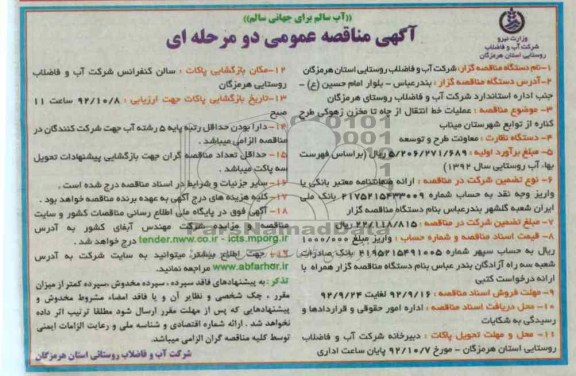 ((آب سالم برای جهانی سالم))
وزارت نیرو
شرکت آب و فاضلاب
روستایی استان هرمزگان
آگهی مناقصه عمومی دو مرحله ای
۱-نام دستگاه مناقصه گزار: شرکت آب و فاضلاب روستایی استان هرمزگان
۲-آدرس دستگاه مناقصه گزار : بندرعباس - بلوار امام حسین (ع) -
جنب اداره استاندارد شرکت آب و فاضلاب روستای هرمزگان
۳- موضوع مناقصه : عملیات خط انتقال از چاه تا مخزن زهوکی طرح
کناره از توابع شهرستان میناب
۴- دستگاه نظارت : معاونت طرح و توسعه
۵- مبلغ برآورد اولیه : ۵/۲۰۶/۲۷۱/۶۸۹ ریال (براساس فهرست
بها، آب روستایی سال ۱۳۹۲)
۶- نوع تضمین شرکت در مناقصه : ارائه ضمانتنامه معتبر بانکی یا
واریز وجه نقد به حساب شماره ۲۱۷۵۲۱۵۴۳۳۰۰۹ بانک ملی
ایران شعبه گلشهر بندرعباس بنام دستگاه مناقصه گزار
۷- مبلغ تضمین شرکت در مناقصه : ریال
۸- قیمت اسناد مناقصه و شماره حساب : واریز مبلغ ۱۰۰۰/۰۰۰
ریال به حساب سپهر شماره ۲۱۹۵۲۱۵۴۹۱۰۰۵ بانک صادرات
شعبه سه راه آزادگان بندر عباس بنام دستگاه مناقصه گزار همراه با
ارائه درخواست کتبی
۹- مهلت فروش اسناد مناقصه : ۹۲/۹/۱۶ لغایت ۹۲/۹/۲۴
۱۰- محل دریافت اسناد مناقصه : اداره امور حقوقی و قراردادها و
رسیدگی به شکایات
۱۱- محل و مهلت تحویل پاکات : دبیرخانه شرکت آب و فاضلاب
روستایی استان هرمزگان - مورخ ۹۲/۱۰/۷ پایان ساعت اداری
۱۲-مکان بازگشایی پاکات : سالن کنفرانس شرکت آب و فاضلاب
روستایی هرمزگان
۱۳-تاریخ بازگشایی پاکات جهت ارزیابی : ۹۲/۱۰/۸ ساعت ۱۱
صبح
۱۴- دارا بودن حداقل رتبه پایه ۵ رشته آب جهت شرکت کنندگان در
مناقصه الزامی میباشد .
۱۵- حداقل تعداد مناقصه گران جهت بازگشایی پیشنهادات تحویل
سه پاکت میباشد .
۱۶- سایر جزئیات و شرایط در اسناد مناقصه درج شده است .
۱۷- کلیه هزینه های درج آگهی به عهده برنده مناقصه خواهد بود .
۱۸- آگهی فوق در پایگاه ملی اطلاع رسانی مناقصات کشور و سایت
مناقصه و مزایده شرکت مهندسی آبفای کشور به آدرس
tender.nww.co.ir - icts.mporg.ir درج خواهد شد .
جهت اطلاع بیشتر میتوانید به سایت شرکت به آدرس
www.abfarhor.ir مراجعه نمائید.
تذکر: به پیشنهادهای فاقد سپرده ، سپرده مخدوش ،سپرده کمتر از میزان
مقرر ، چک شخصی و نظایر آن و یا فاقد امضاء مشروط مخدوش و
پیشنهادهایی که پس از مهلت مقرر ارسال شود مطلقا ترتیب اثر داده
نخواهد شد . ارائه شماره اقتصادی و شناسه ملی و رعایت الزامات ایمنی
توسط کلیه مناقصه گران الزامی میباشد.
شرکت آب و فاضلاب روستائی استان هرمزگان